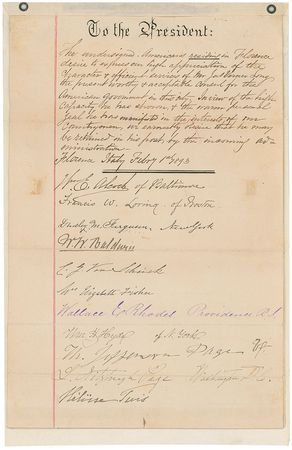 To the President:
The undersigned Americans residing in Florence
desire to express our high appreciation of the
Character & efficient services of Mr. Jas Verner Long
the present worthy & acceptable Consul for the
American government in this city. In view of the high
Capacity he has shown, & the warm personal
Zeal he has manifested in the interests of our
Countrymen, we earnestly desire that he may
be retained in his post, by the incoming ad-
ministration—
Florence Italy Feby 1st 1893
Wm E. of Baltimore
Francis W. Loring of Boston
Dudley M. Ferguson, New York
W. W. Baldwin
C. J. Van
Mrs Elizabeth Fisher
Wallace E. Rhodes Providence R.I.
Wm. H. of N. York
Th. Jefferson Page
Page Washington D.C.